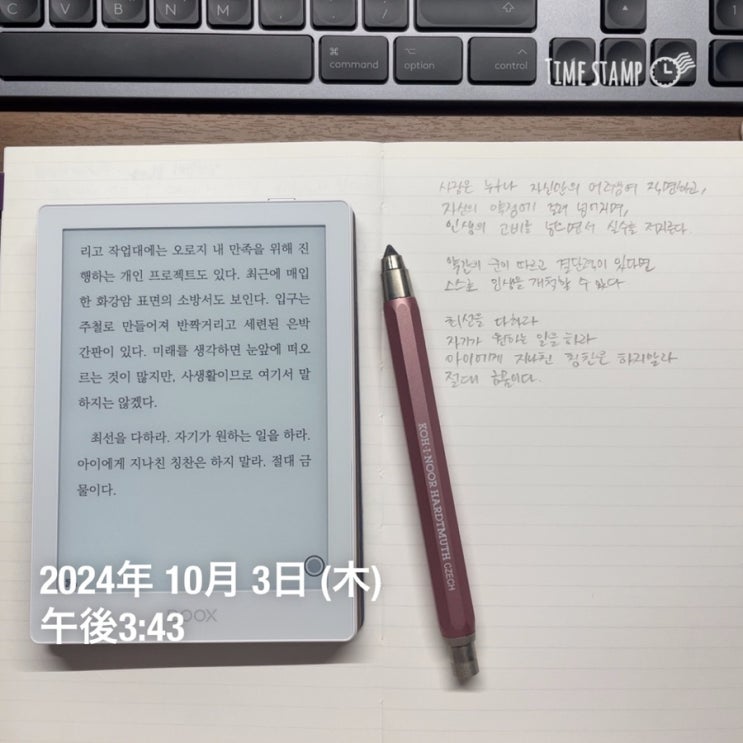 C V B N M
command
option
control
TIME STAMP
리고 작업대에는 오로지 내 만족을 위해 진
행하는 개인 프로젝트도 있다. 최근에 매입
한 화강암 표면의 소방서도 보인다. 입구는
주철로 만들어져 반짝거리고 세련된 은박
간판이 있다. 미래를 생각하면 눈앞에 떠오
르는 것이 많지만, 사생활이므로 여기서 말
하지는 않겠다.
최선을 다하라. 자기가 원하는 일을 하라.
아이에게 지나친 칭찬은 하지 말라. 절대 금
물이다.
BOOX
2024年 10月 3日 (木)
午後3:43
KOH-I-NOOR HARDTMUTH CZECH
누구나 자신만의 직면하고,
자신의 약점에 걸려 넘어지며,
인생의 고비를 넘으면서 실수를 저지른다.
약간의 운이 따르고 결단력이 있다면
스스로 인생을 개척할 수 있다
최선을 다하라
자기가 원하는 일을 하라
아이에게 지나친 칭찬은 하지말라
절대 금물이다.